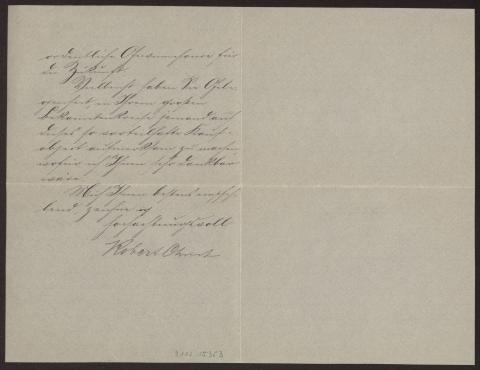 ordentliche Gewinnchance für
die Zukunft.
Vielleicht haben Sie Gele-
genheit, in Ihrem großen
Bekanntenkreise jemand auf
dieses so vorteilhafte Kauf-
object aufmerksam zu machen
wofür ich Ihnen sehr dankbar
wäre.
Mich Ihnen bestens empfeh-
lend, zeichne ich
hochachtungsvoll
Robert